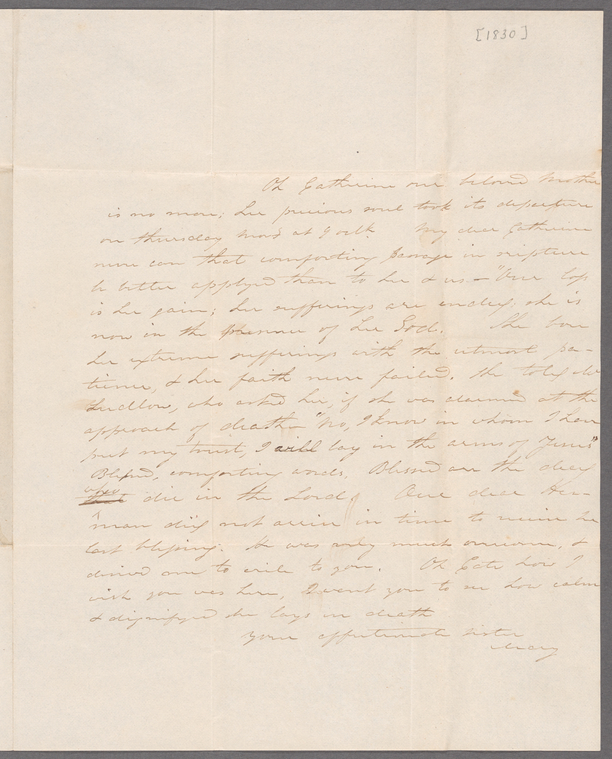 [1830]
Oh Catherine our beloved Mother
is no more; her precious soul took its departure
on thursday at 9 oclk. My dear Catherine
never can that comforting passage in scripture
be better applyed than to her & us - "Our loss
is her gain; her sufferings are ended; she is
now in the presence of her God. She bore
her extreme sufferings with the utmost pa-
tience, & her faith never failed. She told Mr
Ludlow, who asked her, if she was alarmed at the
approach of death - "No, I know in whom I have
put my trust, I will lay in the arms of Jesus"
Blessed, comforting words, Blessed are the dead
who die in the Lord, Our dear Her-
man did not arrive in time to receive her
last blessing. He was very much overcome, &
desired me to write to you. Oh Cate how I
wish you was here, I want you to see how calm
& dignifyed she lays in death
Your affectionate sister
Mary